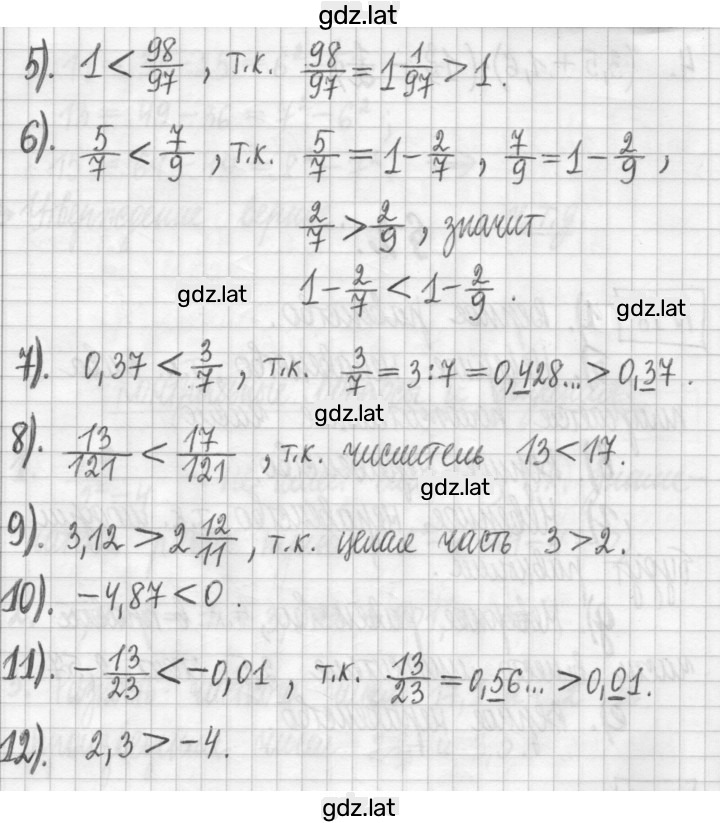 gdz.lat
5). 1 < 98/97 , т.к. 98/97 = 1 1/97 > 1.
6). 5/7 < 7/9 , т.к. 5/7 = 1 - 2/7 , 7/9 = 1 - 2/9 ,
2/7 > 2/9 , значит
1 - 2/7 < 1 - 2/9 .
gdz.lat
gdz.lat
7). 0,37 < 3/7 , т.к. 3/7 = 3:7 = 0,428... > 0,37 .
gdz.lat
8). 13/121 < 17/121 , т.к. числитель 13 < 17.
gdz.lat
9). 3,12 > 2 12/11 , т.к. целая часть 3 > 2.
10). -4,87 < 0 .
11). - 13/23 < -0,01 , т.к. 13/23 = 0,56... > 0,01.
12). 2,3 > -4.
gdz.lat